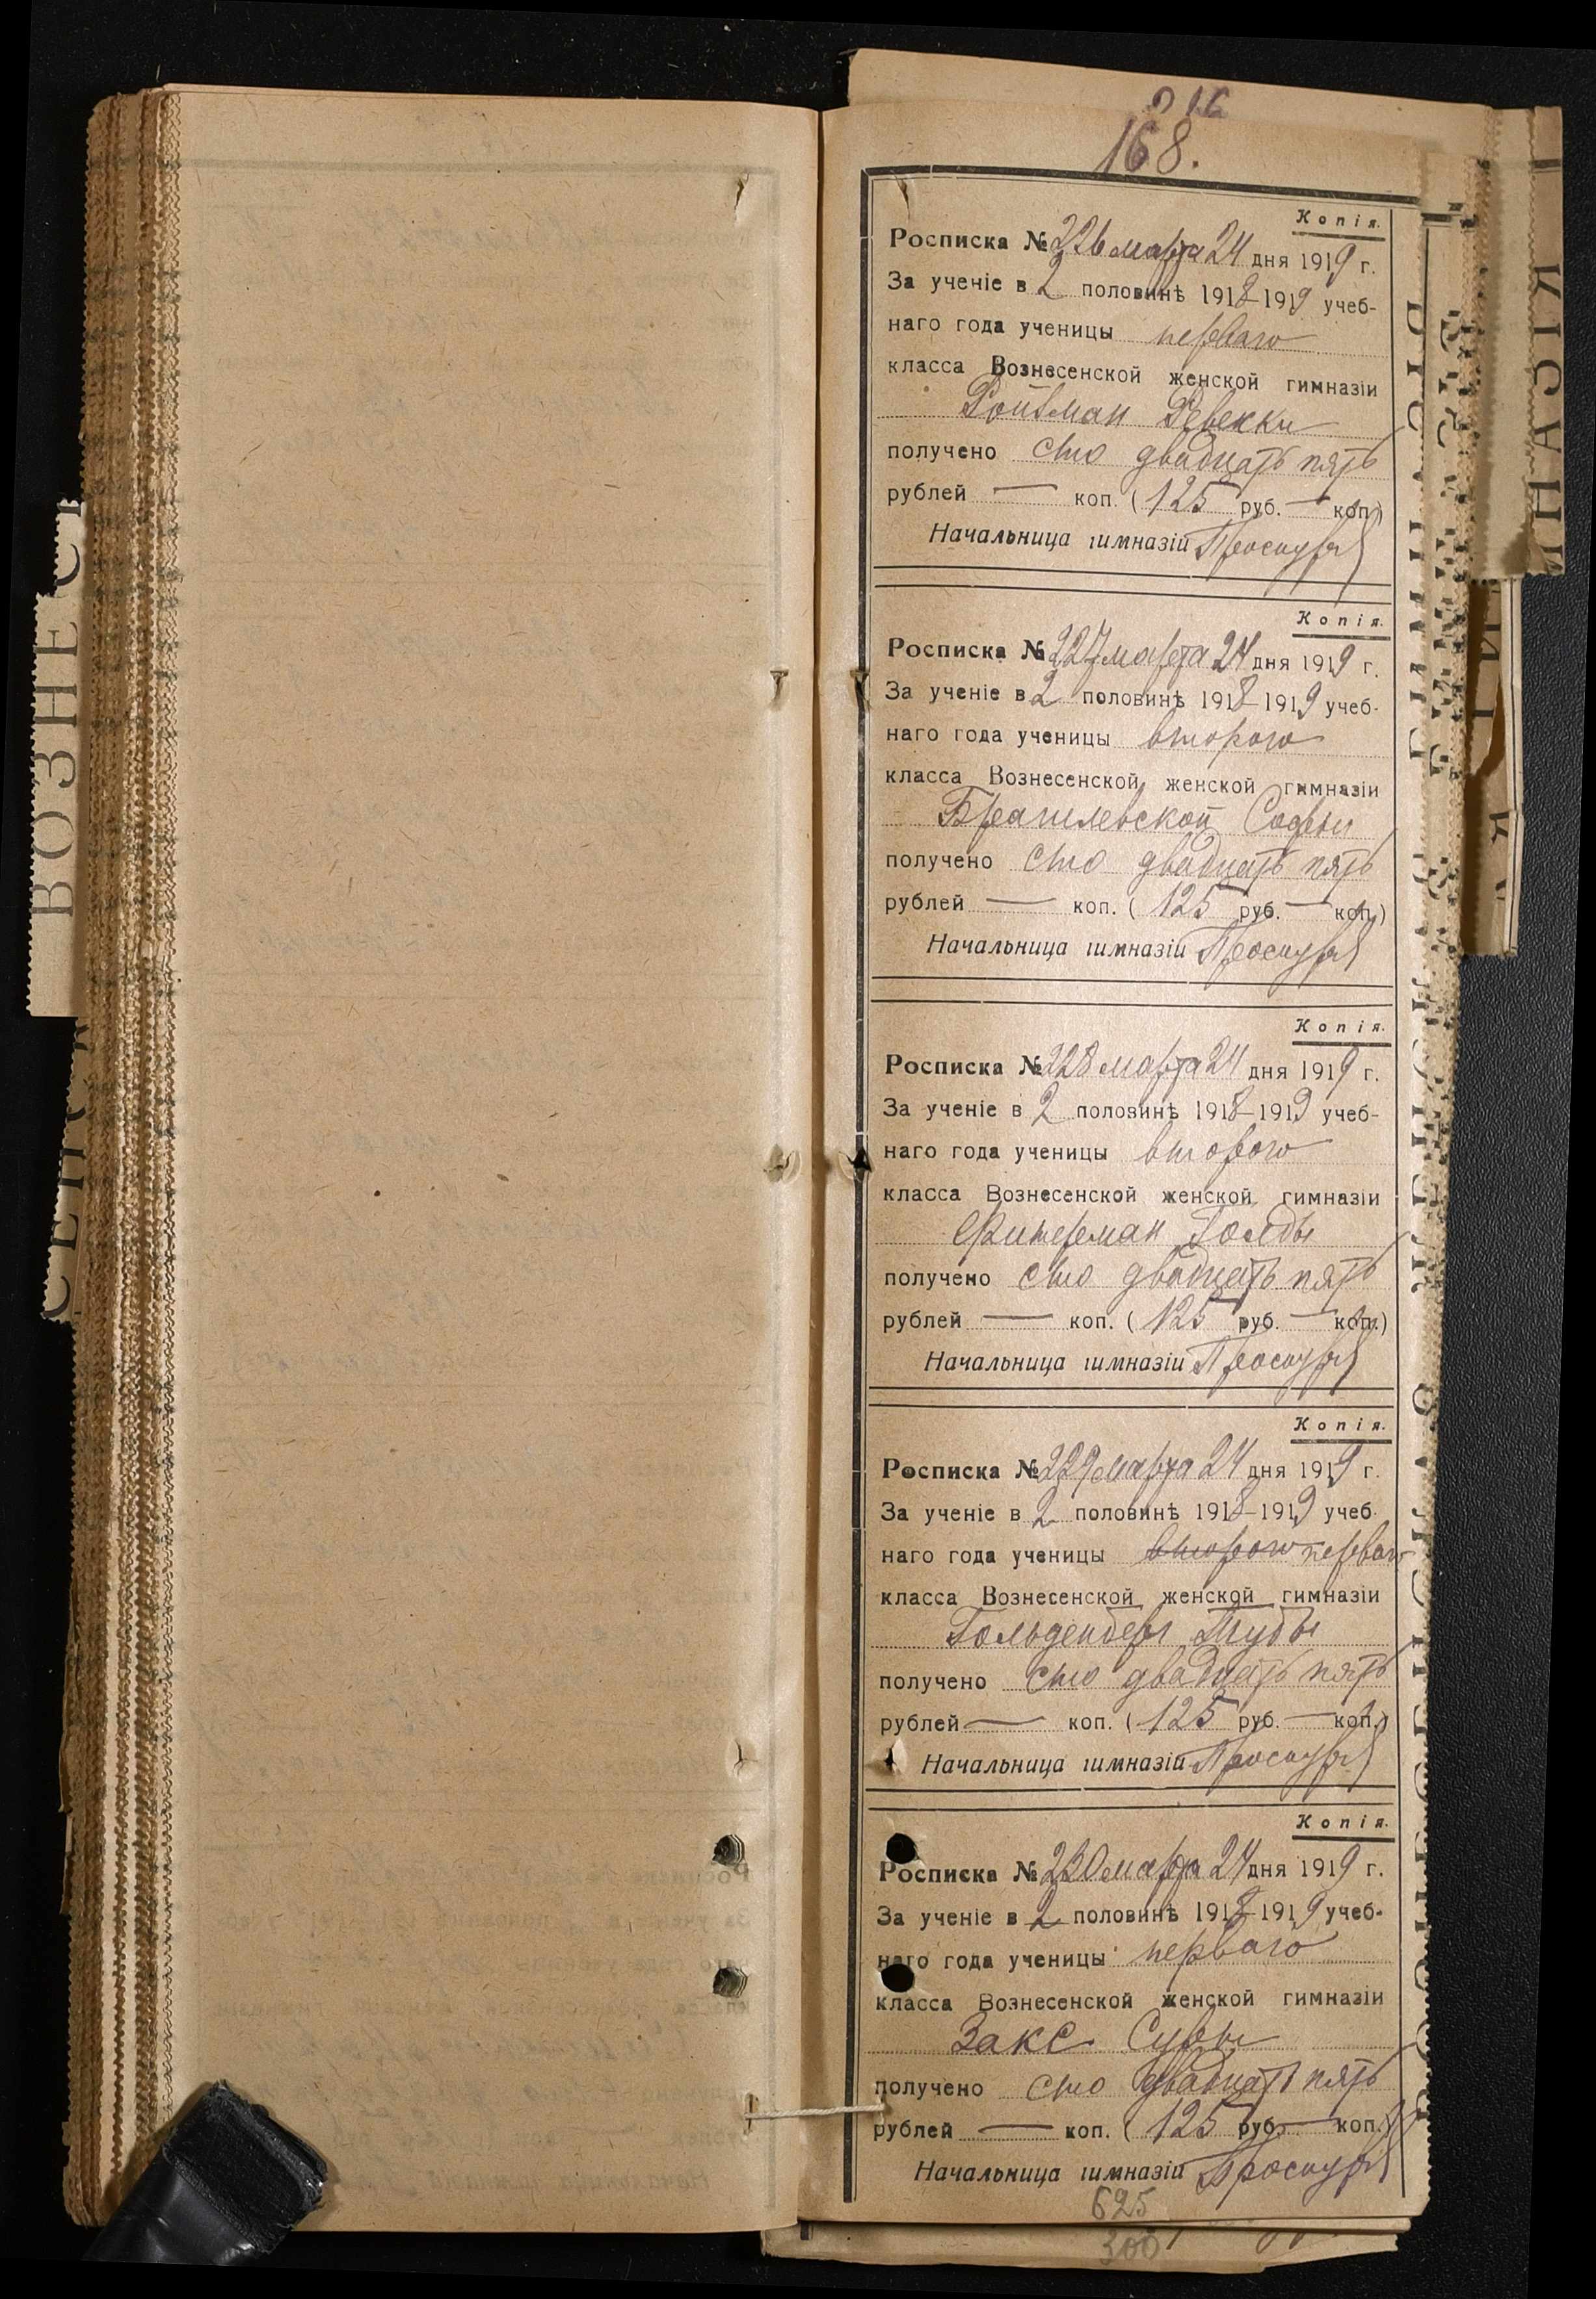 168.
Копія.
Росписка № 226 марта 24 дня 1919 г.
За ученіе в 2 половинѣ 1918-1919 учеб-
наго года ученицы перваго
класса Вознесенской женской гимназіи
Ройтман Ревекки
получено сто двадцать пять
рублей — коп. (125 руб. — коп.)
Начальница гимназіи
Копія.
Росписка № 227 марта 24 дня 1919 г.
За ученіе в 2 половинѣ 1918-1919 учеб-
наго года ученицы второго
класса Вознесенской женской гимназіи
Брагилевской Софьи
получено сто двадцать пять
рублей — коп. (125 руб. — коп.)
Начальница гимназіи
Копія.
Росписка № 228 марта 24 дня 1919 г.
За ученіе в 2 половинѣ 1918-1919 учеб-
наго года ученицы второго
класса Вознесенской женской гимназіи
Фитерман Голды
получено сто двадцать пять
рублей — коп. (125 руб. — коп.)
Начальница гимназіи
Копія.
Росписка № 229 марта 24 дня 1919 г.
За ученіе в 2 половинѣ 1918-1919 учеб
наго года ученицы второго перваго
класса Вознесенской женской гимназіи
Гольденберг Тубы
получено сто двадцать пять
рублей — коп. (125 руб. — коп.)
Начальница гимназіи
Копія.
Росписка № 230 марта 24 дня 1919 г.
За ученіе в 2 половинѣ 1918-1919 учеб-
наго года ученицы перваго
класса Вознесенской женской гимназіи
Закс Суры
получено сто двадцать пять
рублей — коп. (125 руб. — коп.)
Начальница гимназіи
625
300
ВОЗНЕС